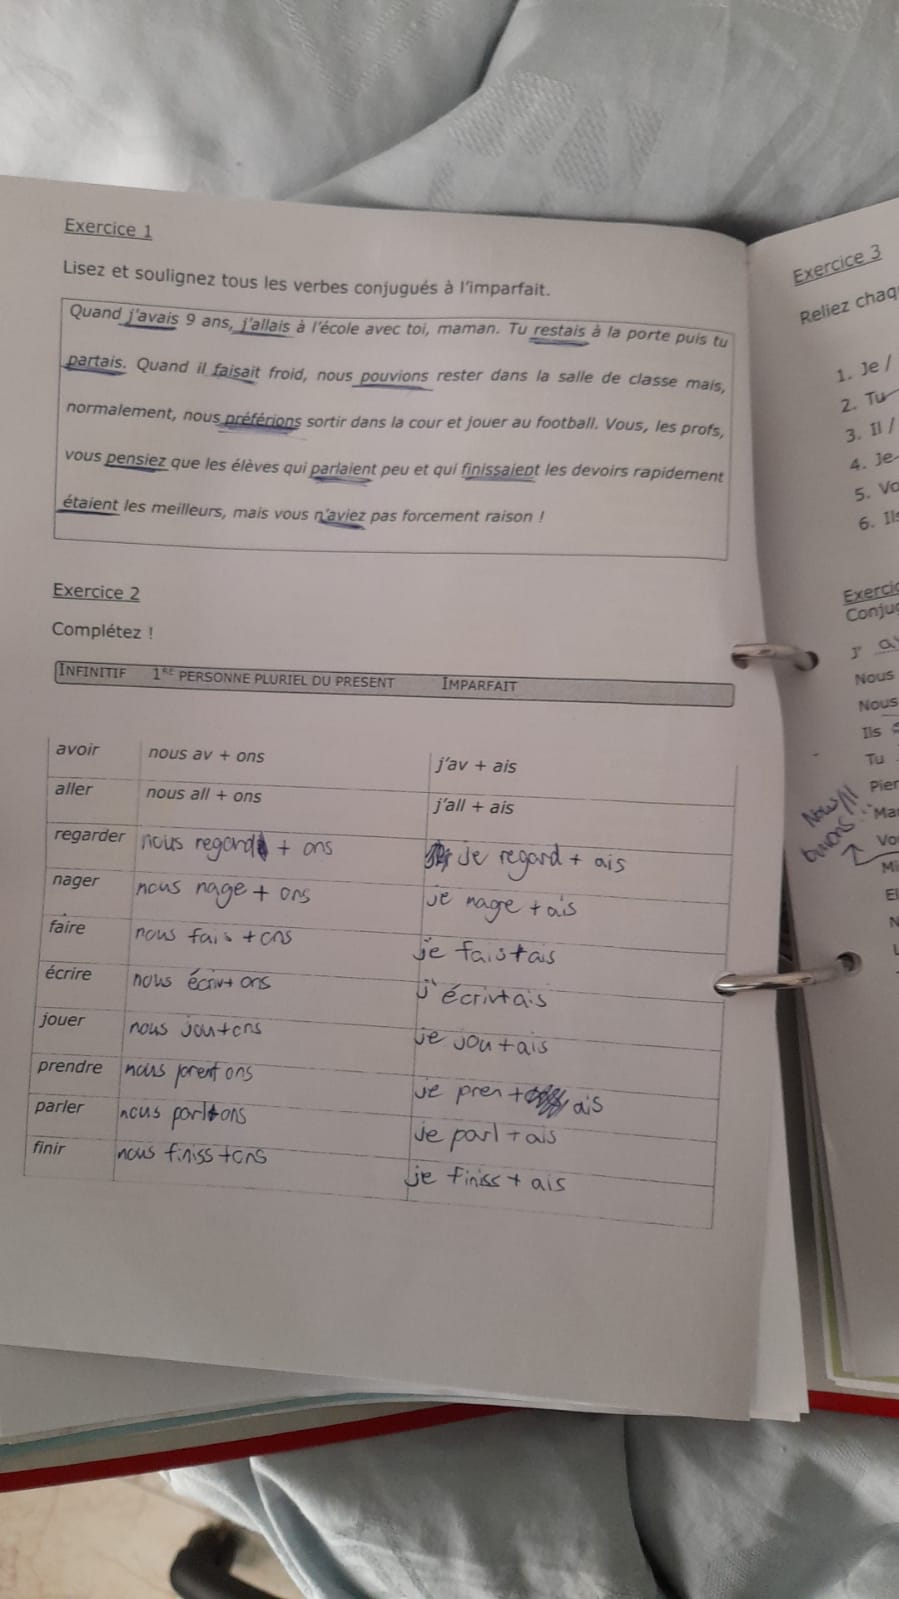 Exercice 1
Lisez et soulignez tous les verbes conjugués à l'imparfait.
Quand j'avais 9 ans, j'allais à l'école avec toi, maman. Tu restais à la porte puis tu
partais. Quand il faisait froid, nous pouvions rester dans la salle de classe mais,
normalement, nous préférions sortir dans la cour et jouer au football. Vous, les profs,
vous pensiez que les élèves qui parlaient peu et qui finissaient les devoirs rapidement
étaient les meilleurs, mais vous n'aviez pas forcement raison !
Exercice 2
Complétez !
INFINITIF 1RE PERSONNE PLURIEL DU PRESENT IMPARFAIT
avoir nous av + ons j'av + ais
aller nous all + ons j'all + ais
regarder nous regard + ons je regard + ais
nager nous nage + ons je nage + ais
faire nous fais + ons je fais + ais
écrire nous écriv + ons j'écriv + ais
jouer nous jou + ons je jou + ais
prendre nous pren + ons je pren + ais
parler nous parl + ons je parl + ais
finir nous finiss + ons je finiss + ais
Exercice 3
Reliez chaq
1. Je /
2. Tu
3. Il /
4. Je
5. Vo
6. Ils
Exercic
Conjug
J' av
Nous
Nous
Ils
Tu
Pier
Mar
Vo
Mi
El
N